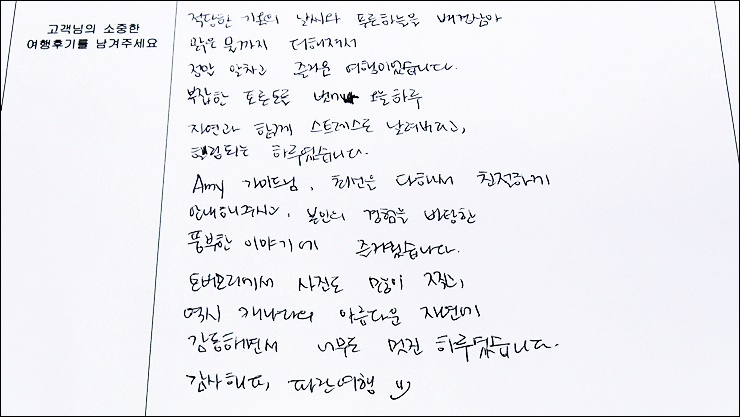 고객님의 소중한
여행후기를 남겨주세요
적당한 기온의 날씨와 푸른하늘을 배경삼아
맑은 물까지 더해져서
정말 알차고 즐거운 여행이었습니다.
복잡한 토론토를 오늘하루
자연과 함께 스트레스도 날려버리고,
힐링되는 하루였습니다.
Amy 가이드님, 최선을 다해서 친절하게
안내해주시고, 본인의 경험을 바탕한
풍부한 이야기에 즐거웠습니다.
토버모리에서 사진도 많이 찍고,
역시 캐나다의 아름다운 자연에
감동하면서 너무도 멋진 하루였습니다.
감사해요, 파란여행